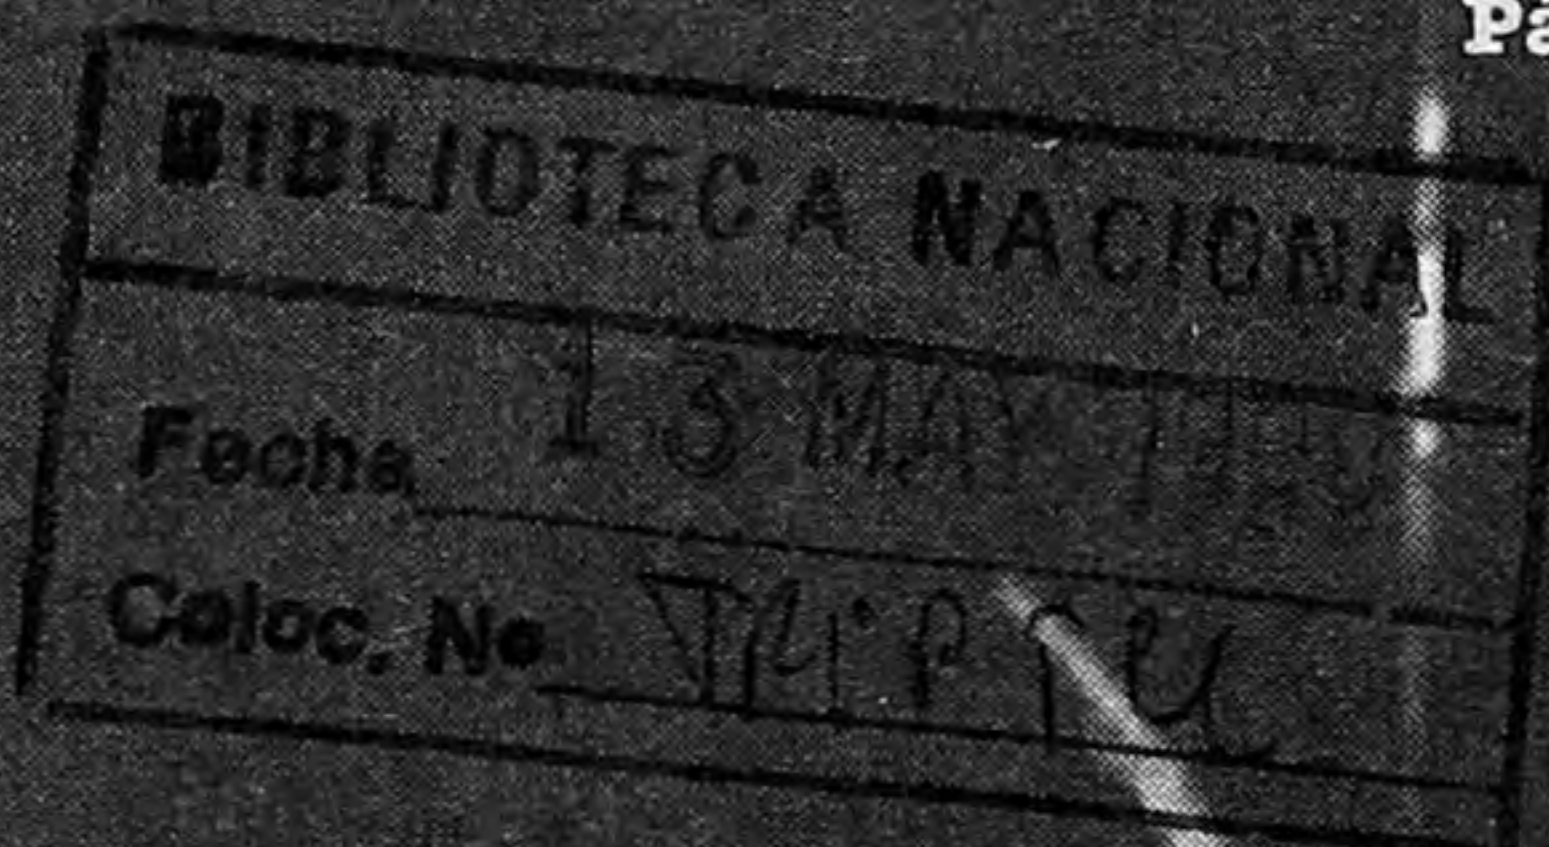 Pa
BIBLIOTECA NACIONAL
Fecha 13 MAY
Coloc. No